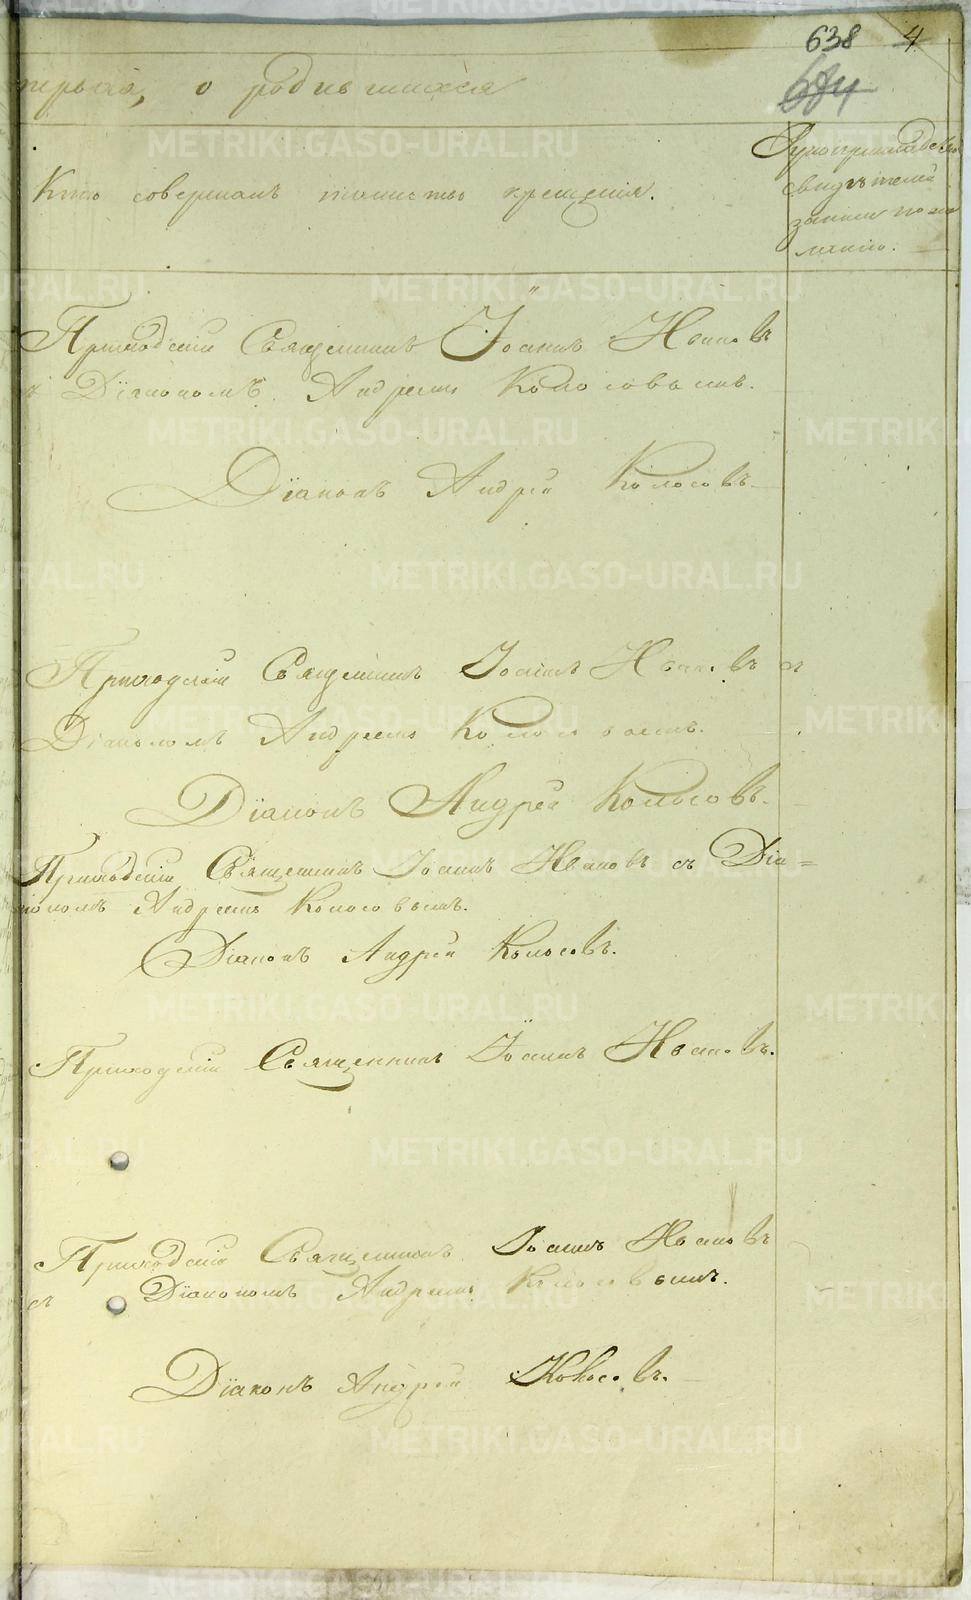 638 4
684
первая, о родившихся
Кто совершалъ таинство крещенія.
Рукоприкладство
свидѣтелей
записи по же
ланію.
Приходскій Священникъ Іоаннъ Ивановъ
съ Діакономъ Андреемъ Колосовымъ.
Діаконъ Андрей Колосовъ.
Приходскій Священникъ Іоаннъ Ивановъ съ
Діакономъ Андреемъ Колосовымъ.
Діаконъ Андрей Колосовъ.
Приходскій Священникъ Іоаннъ Ивановъ съ Діа=
кономъ Андреемъ Колосовымъ.
Діаконъ Андрей Колосовъ.
Приходскій Священникъ Іоаннъ Ивановъ.
Приходскій Священникъ Іоаннъ Ивановъ
съ Діакономъ Андреемъ Колосовымъ.
Діаконъ Андрей Колосовъ.
METRIKI.GASO-URAL.RU